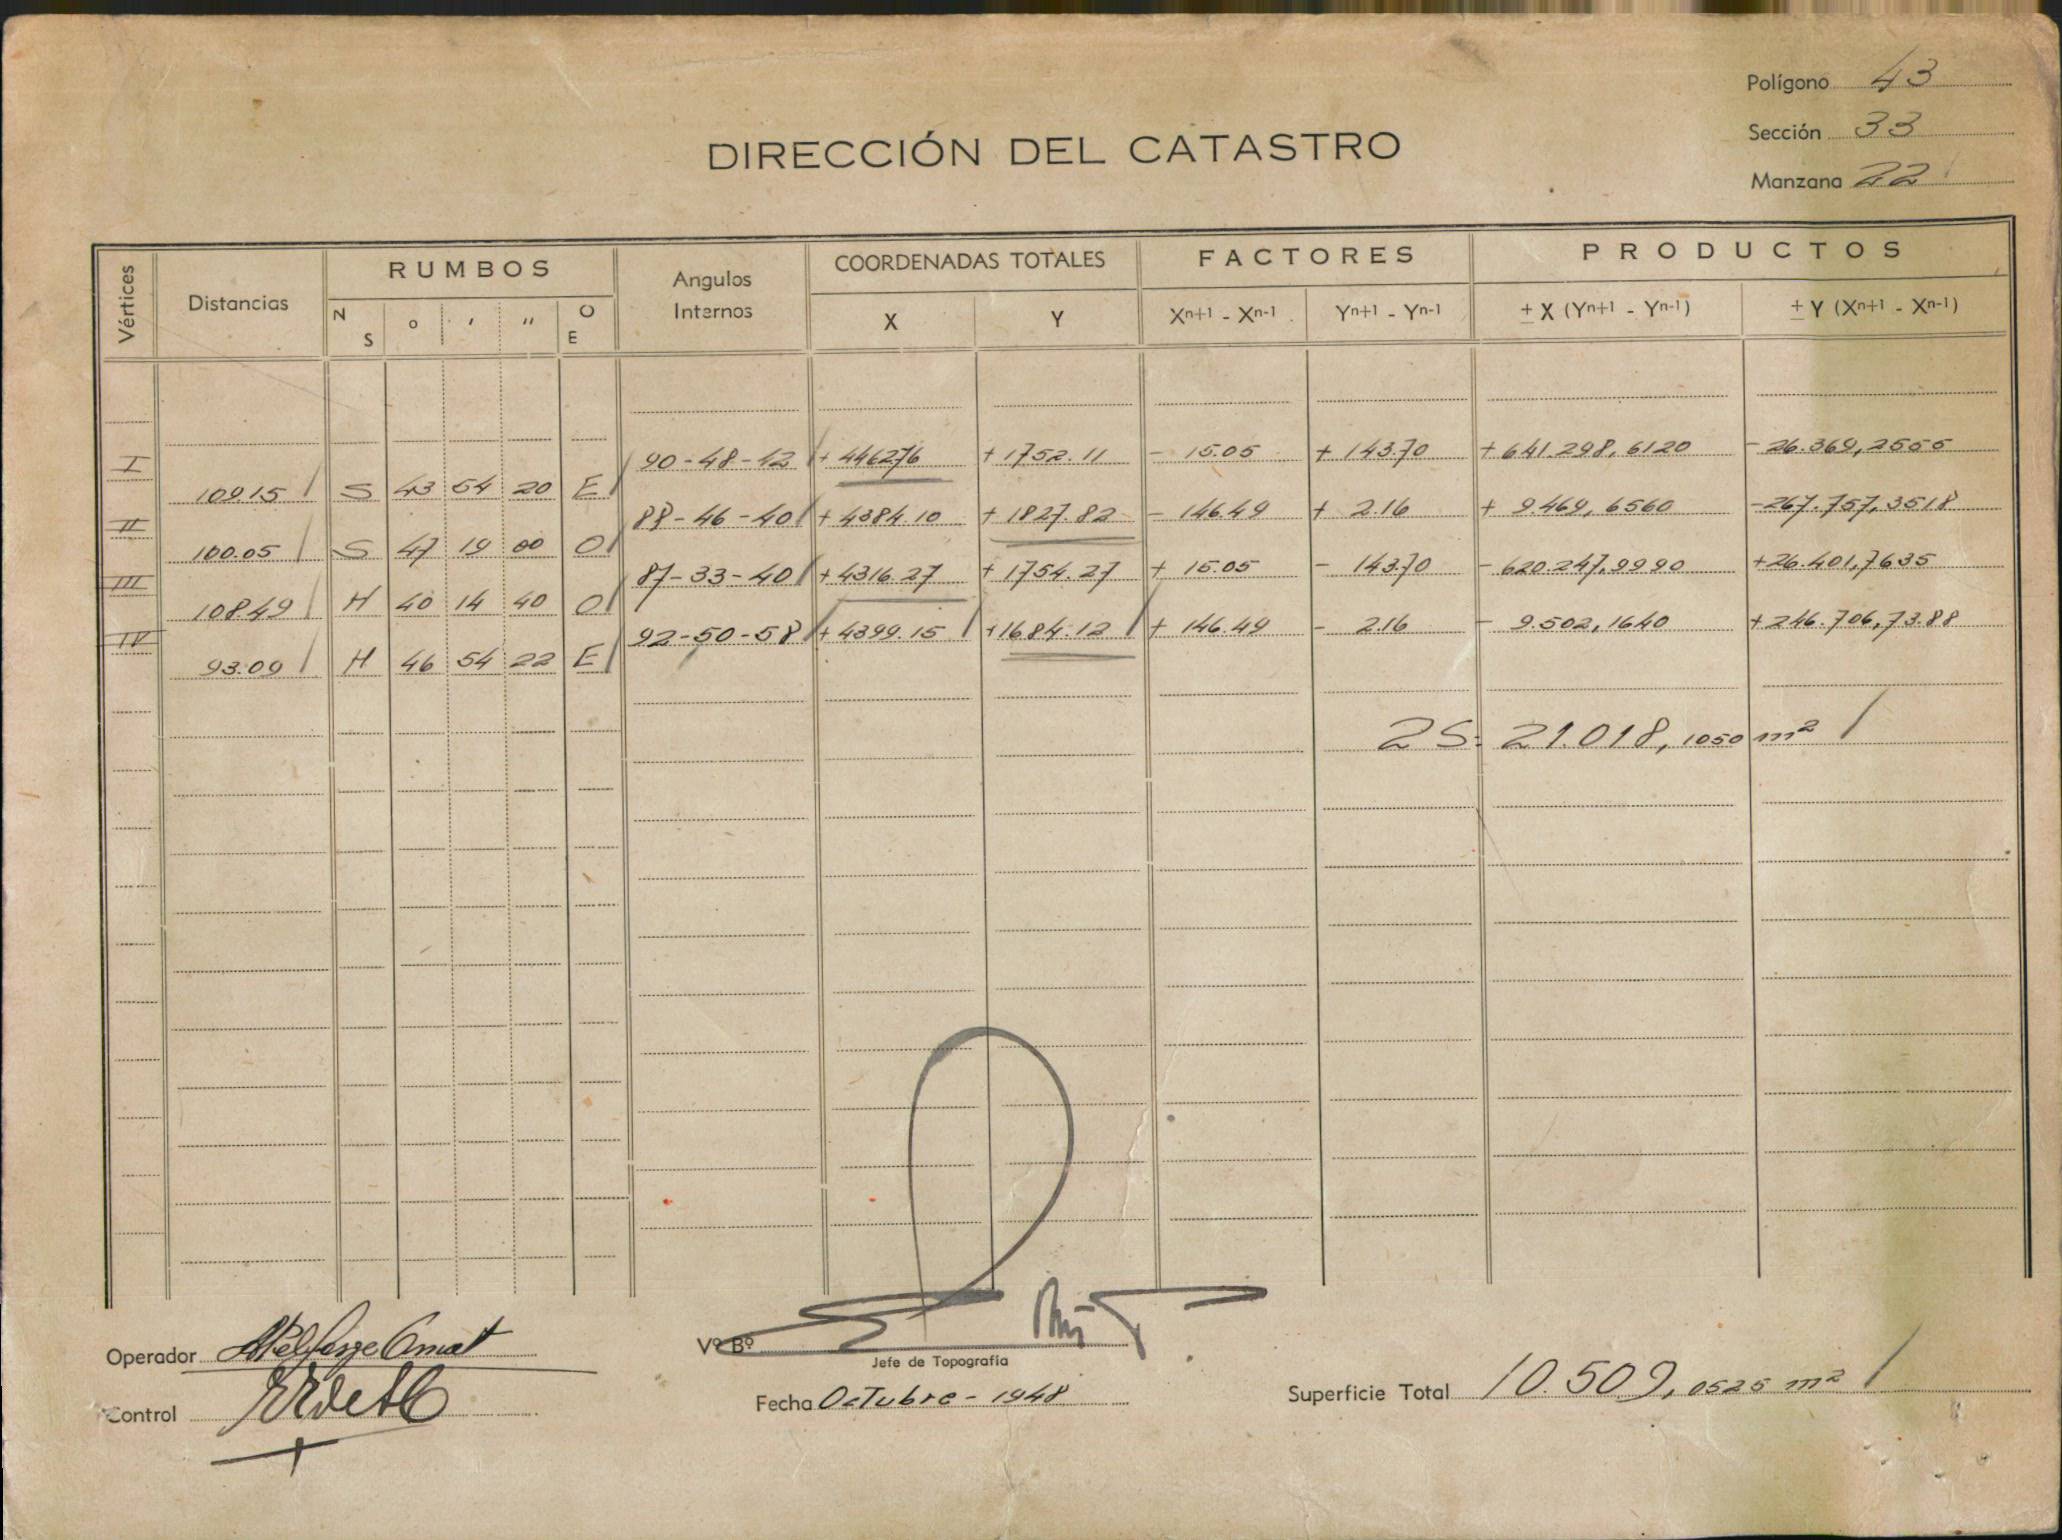 Polígono 43
Sección 33
Manzana 22
DIRECCIÓN DEL CATASTRO
Vértices Distancias RUMBOS Angulos Internos COORDENADAS TOTALES FACTORES PRODUCTOS
N S ° ' " O E X Y Xn+1 - Xn-1 Yn+1 - Yn-1 ± X (Yn+1 - Yn-1) ± Y (Xn+1 - Xn-1)
I 90-48-42 + 4462.76 + 1752.11 - 15.05 + 143.70 + 641.298,6120 - 26.369,2555
109.15 S 43 54 20 E
II 88-46-40 + 4384.10 + 1827.82 - 146.49 + 2.16 + 9.469,6560 - 267.757,3518
100.05 S 47 19 00 O
III 87-33-40 + 4316.27 + 1754.27 + 15.05 - 143.70 - 620.247,9990 + 26.401,7635
108.49 N 40 14 40 O
IV 92-50-58 + 4399.15 + 1684.12 + 146.49 - 2.16 - 9.502,1640 + 246.706,73.88
93.09 N 46 54 22 E
2S: 21.018,1050 m²
Operador
Vº Bº
Jefe de Topografía
Control
Fecha Octubre - 1948
Superficie Total 10.509,0525 m²